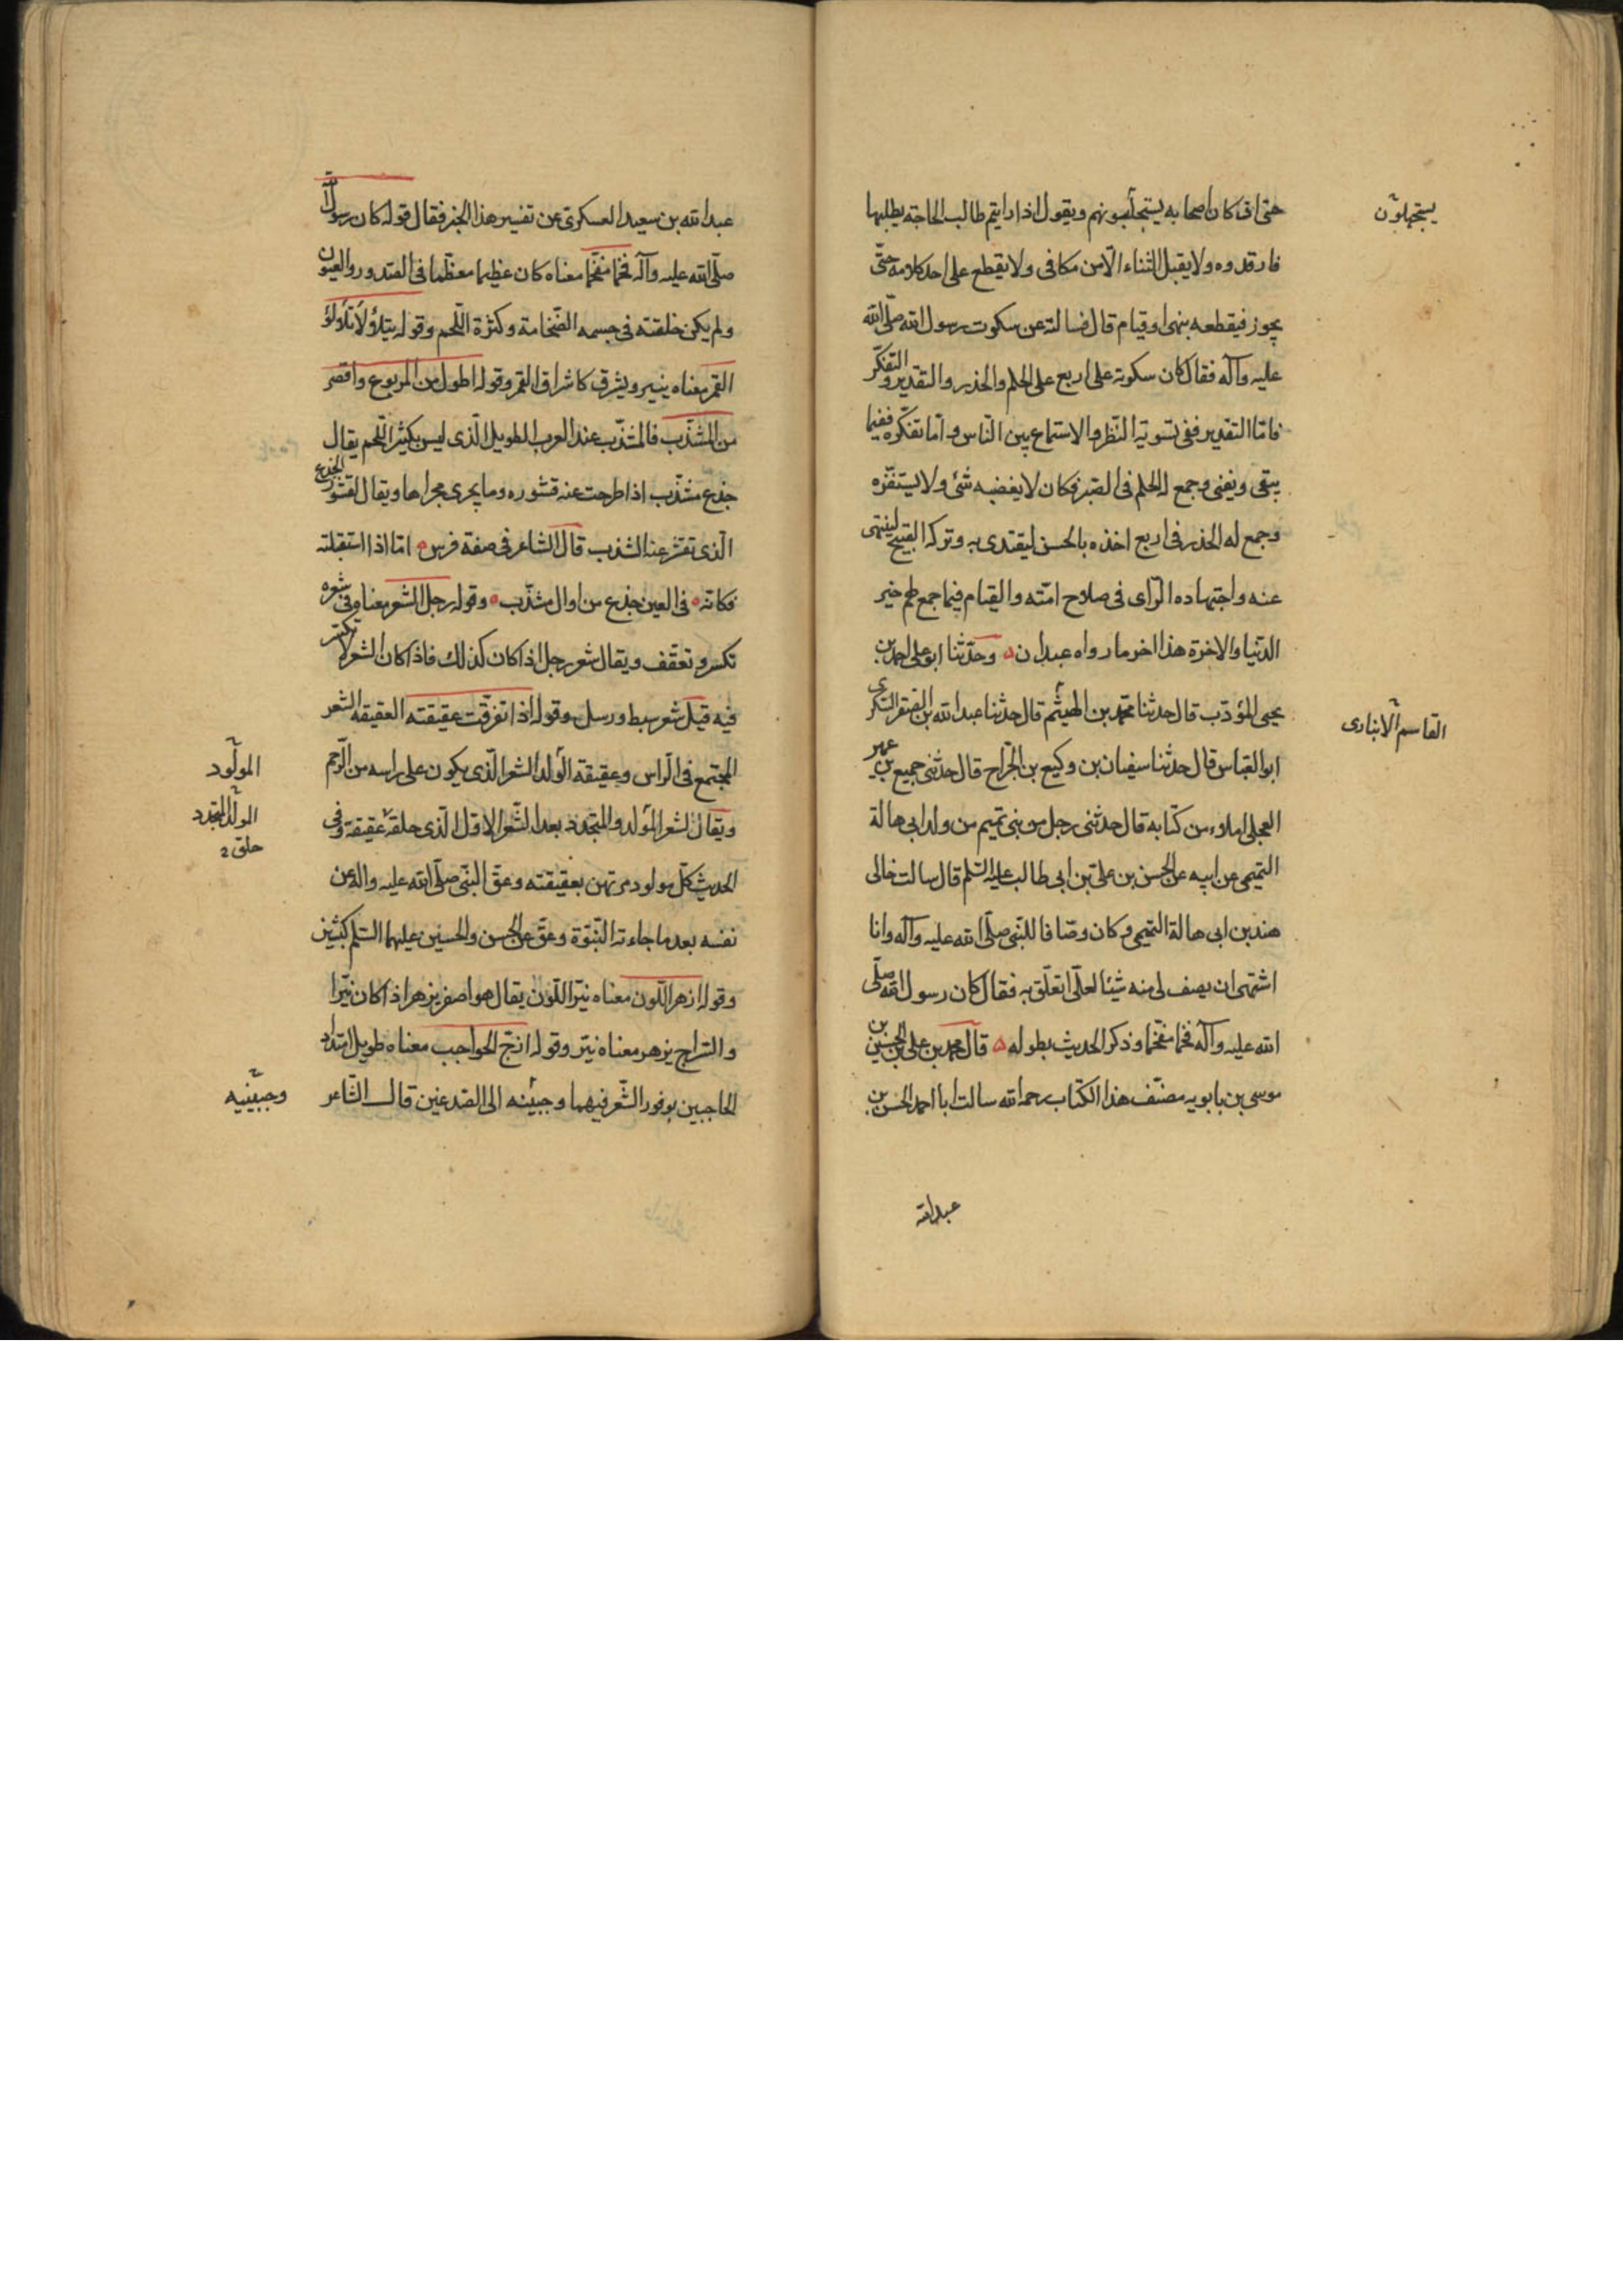 حتى ان كان اصحابه يستجلبونهم ويقول اذا رايتم طالب الحاجة يطلبها
فارفدوه ولا يقبل الثناء الا من مكافى ولا يقطع على احد كلامه حتّى
يجوز فيقطعه بنهى او قيام قال فسالته عن سكوت رسول الله صلّى الله
عليه وآله فقال كان سكوته على اربع على الحلم والحذر والتقدير والتفكّر
فامّا التقدير ففى تسوية النّظر والاستماع بين النّاس وامّا تفكّره ففيما
يبقى ويفنى وجمع له الحلم فى الصّبر فكان لا يغضبه شئ ولا يستفزّه
وجمع له الحذر فى اربع اخذه بالحسن ليقتدى به وتركه القبيح لينتهى
عنه واجتهاده الرّاى فى صلاح امّته والقيام فيما جمع لهم خير
الدّنيا والاخرة هذا اخر ما رواه عبدان ۵ وحدّثنا ابو على احمد بن
يحيى المؤدّب قال حدثنا محمّد بن الهيثم قال حدثنا عبد الله بن الصقر السّكرى
ابو العبّاس قال حدثنا سفيان بن وكيع بن الجرّاح قال حدثنى جميع بن عمير
العجلى املاء من كتابه قال حدثنى رجل من بنى تميم من ولد ابى هالة
التميمى عن ابيه عن الحسن بن علىّ بن ابى طالب عليه السّلم قال سالت خالى
هند بن ابى هالة التميمى وكان وصّافا للنّبى صلّى الله عليه وآله وانا
اشتهى ان يصف لى منه شيئا لعلّى اتعلّق به فقال كان رسول الله صلّى
الله عليه وآله فخما مفخّما وذكر الحديث بطوله ۵ قال محمد بن على بن الحسين بن
موسى بن بابويه مصنّف هذا الكتاب رحمه الله سالت ابا احمد الحسن بن
عبد الله
يستجهلون
القاسم الانبارى
عبد الله بن سعيد العسكرىّ عن تفسير هذا الخبر فقال قوله كان رسول الله
صلّى الله عليه وآله فخما مفخّما معناه كان عظيما معظّما فى الصّدور والعيون
ولم يكن خلقته فى جسمه الضّخامة وكثرة اللّحم وقوله يتلؤلأ تلؤلؤ
القمر معناه ينير ويشرق كاشراق القمر وقوله اطول من المربوع واقصر
من المشذّب فالمشذّب عند العرب الطويل الّذى ليس بكثير اللّحم يقال
جذع مشذّب اذا طرحت عنه قشوره وما يجرى مجراها ويقال لقشور الجذع
الّذى تقشر عنه الشذب قال الشاعر فى صفة فرس ۵ امّا اذا استقبلته
فكانّه ۵ فى العين جذع من اوال مشذّب ۵ وقوله رجل الشّعر معناه فى شعره
تكسّر وتعقّف ويقال شعر رجل اذا كان كذلك فاذا كان الشعر لا تكسّر
فيه قيل شعر سبط ورسل وقوله اذا تفرّقت عقيقته العقيقه الشعر
المجتمع فى الرّاس وعقيقة الولد الشعر الّذى يكون على راسه من الرّحم
ويقال لشعر المولد والمتجدّد بعد الشّعر الاوّل الّذى حلقه عقيقة وفى
الحديث كلّ مولود مرتهن بعقيقته وعقّ النّبى صلّى الله عليه واله عن
نفسه بعد ما جاءته النّبوّة وعقّ عن الحسن والحسين عليهما السّلم كبشين
وقوله ازهر اللّون معناه نيّر اللّون يقال هو اصفر يزهر اذا كان نيّرا
والسّراج يزهر معناه نيّر وقوله ازجّ الحواجب معناه طويل امتداد
الحاجبين بوفور الشّعر فيهما وجبينه الى الصّدغين قال الشّاعر
المولود
المولد المتجدد
حلق
وجبينيه